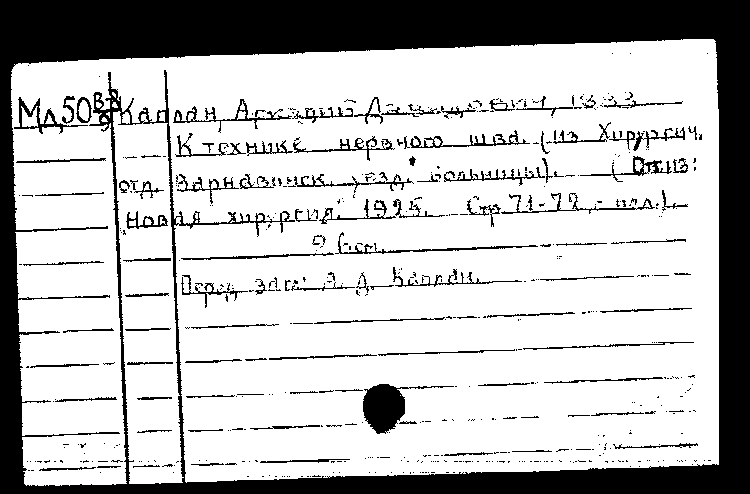 Мд50 В-8/9 Каплан, Аркадий Давидович, 1883
К технике нервного шва. (Из Хирургич.
отд. Варнавинск. уезд. больницы). (Отт. из:
"Новая хирургия". 1925. Стр. 71-72, - пол.).
Перед загл: А. Д. Каплан.